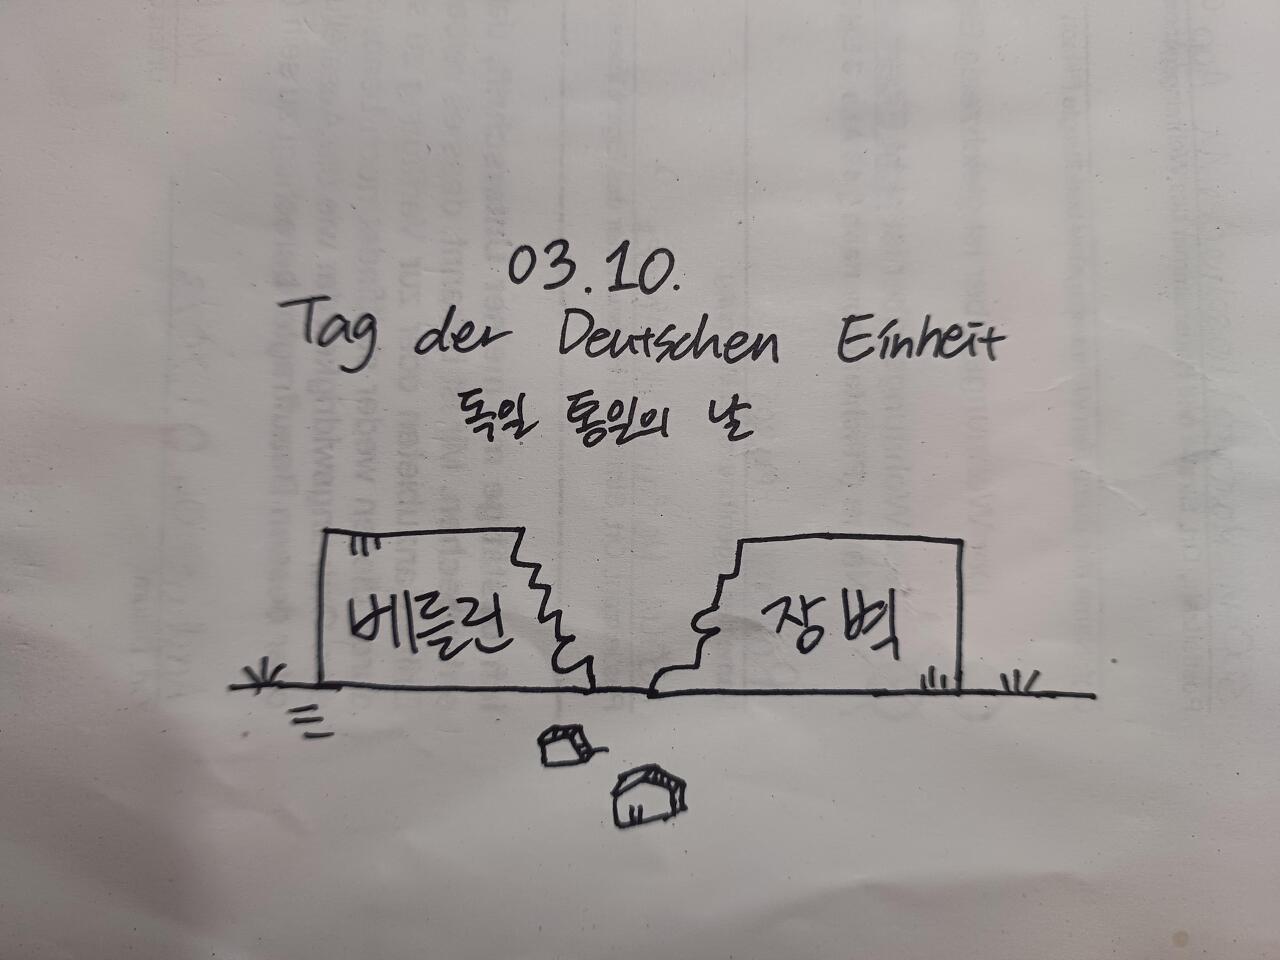 03.10.
Tag der Deutschen Einheit
독일 통일의 날
베를린 장벽